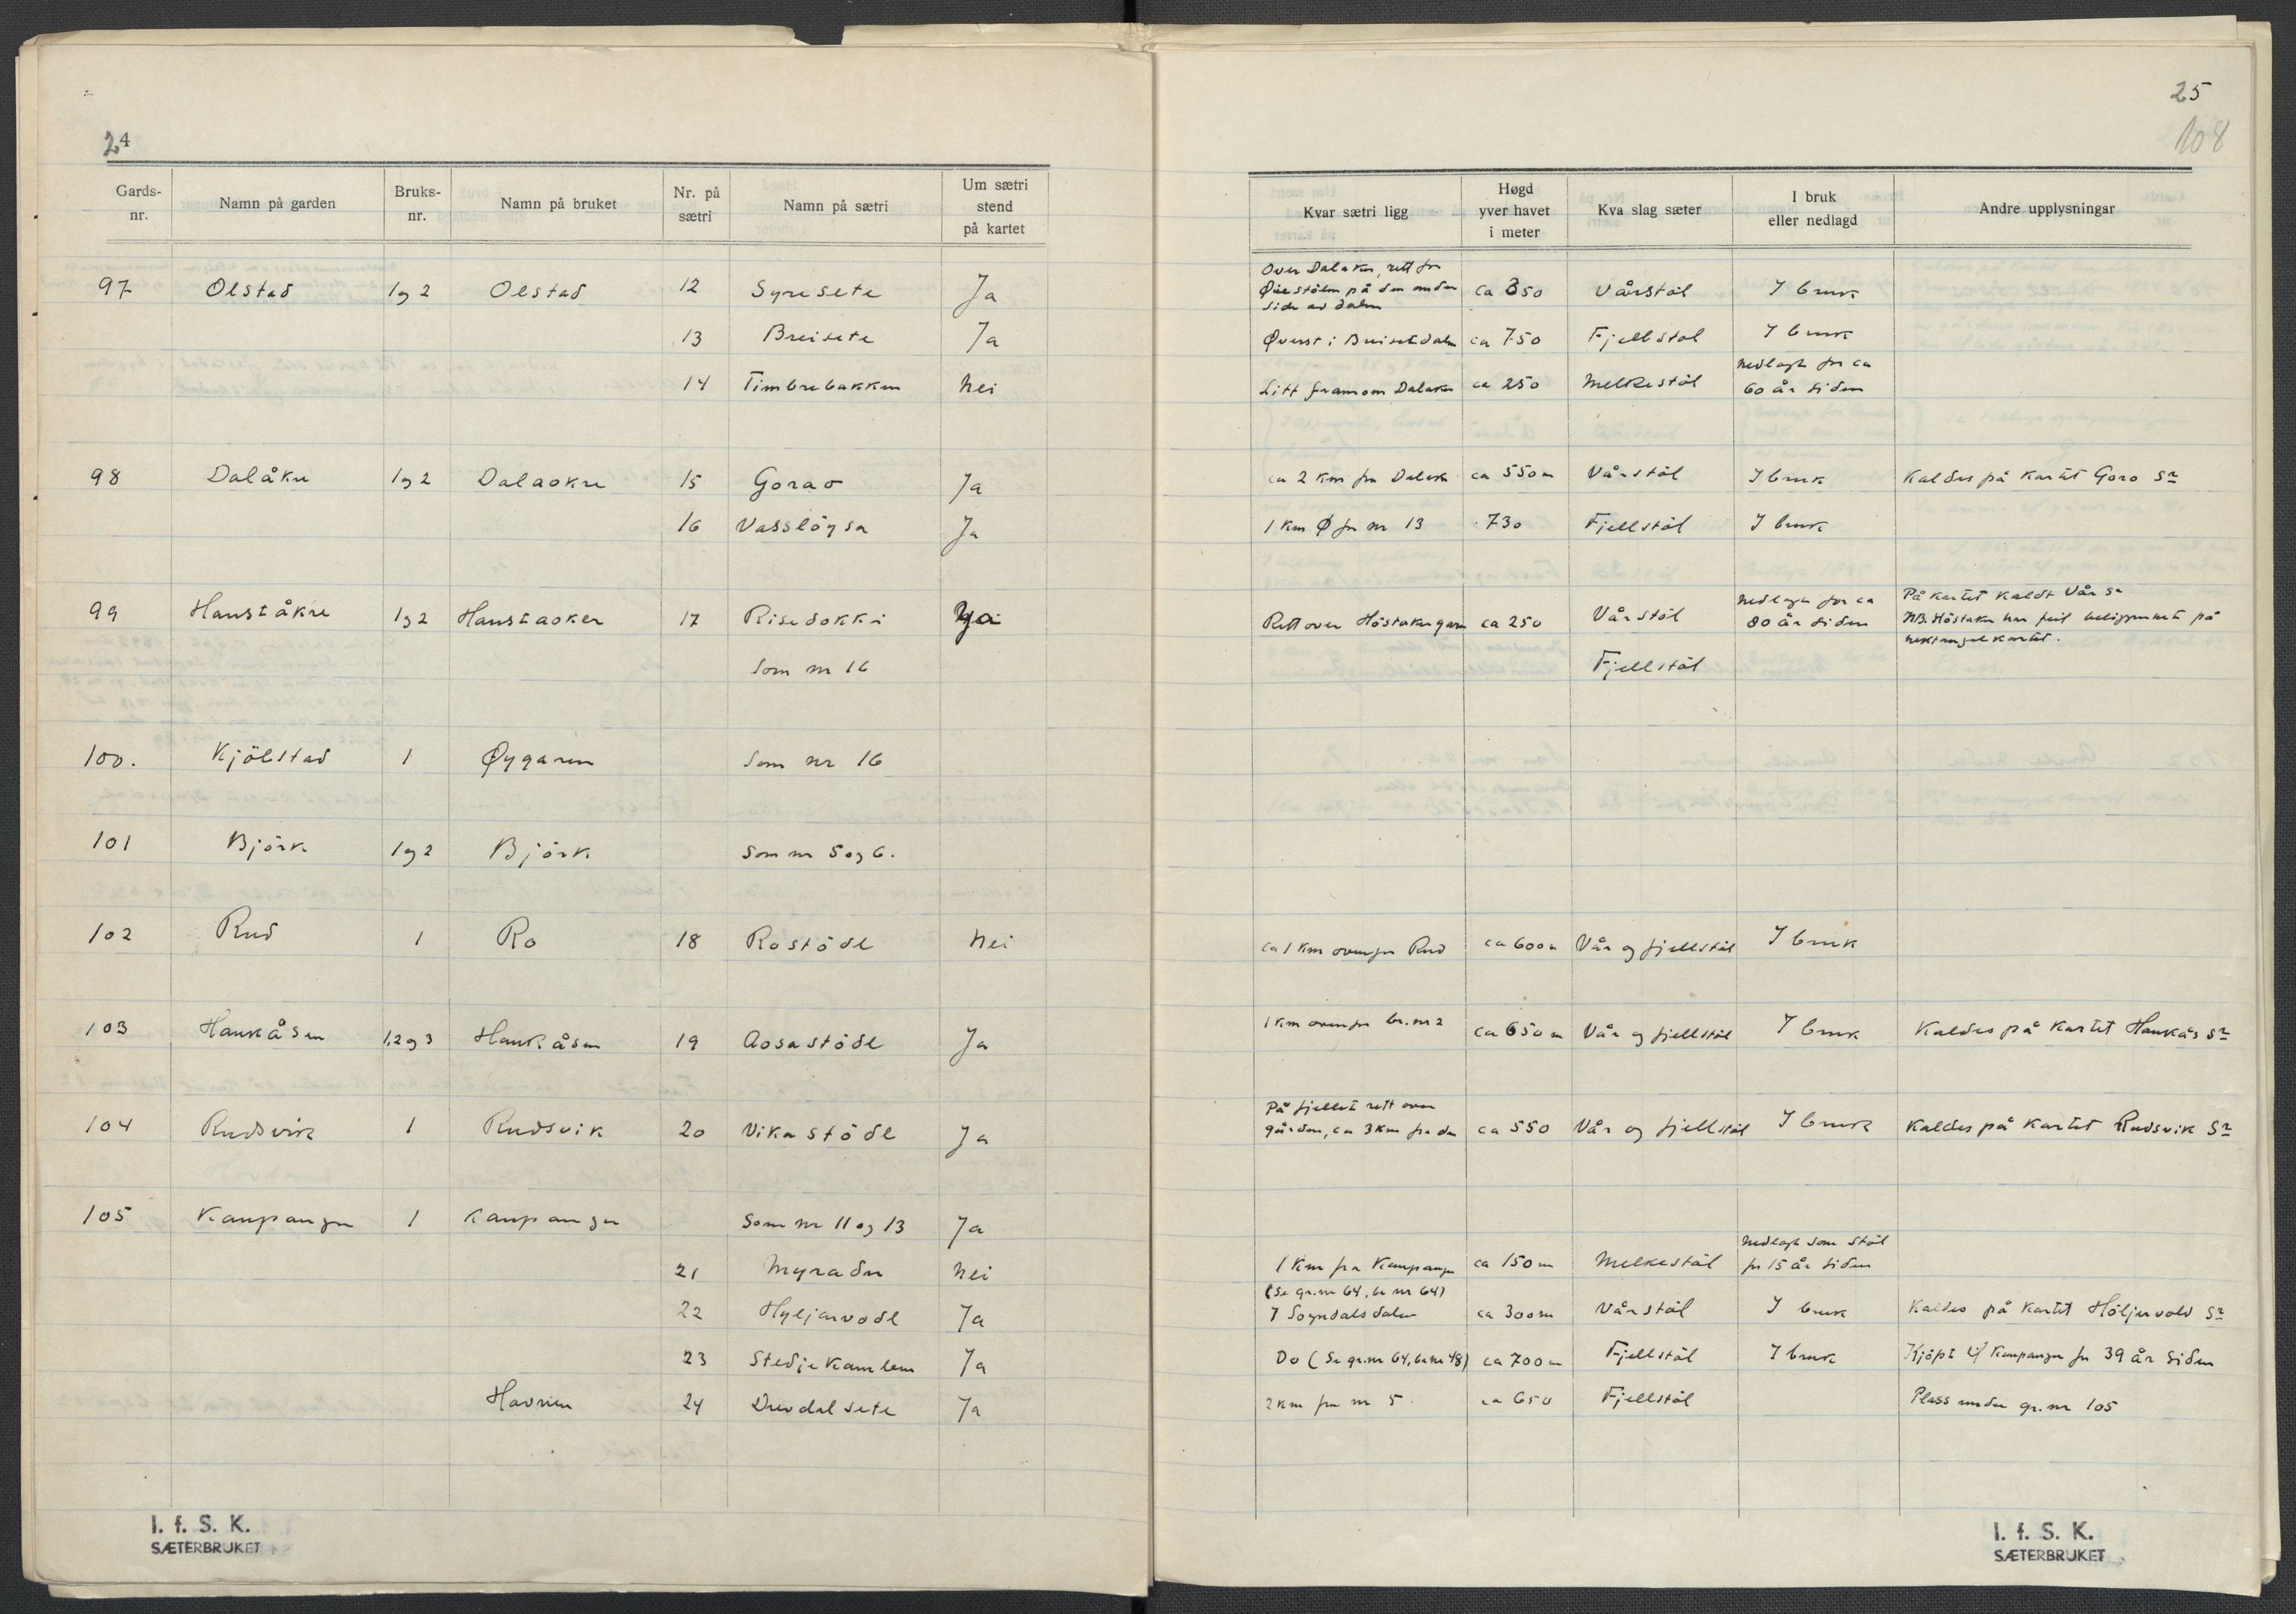 24
Gards-nr. Namn på garden Bruks-nr. Namn på bruket Nr. på sætri Namn på sætri Um sætri stend på kartet
97 Olstad 1 og 2 Olstad 12 Syresete Ja
13 Breisete Ja
14 Timbrebakken Nei
98 Dalåkre 1 og 2 Dalaokre 15 Gorao Ja
16 Vasslöysa Ja
99 Hauståkre 1 og 2 Haustaoker 17 Risedokki Ja
Som nr 16
100. Kjölstad 1 Øygaren Som nr 16
101 Björk 1 og 2 Björk Som nr 5 og 6.
102 Rud 1 Ro 18 Rostödl Nei
103 Haukåsen 1,2 og 3 Haukåsen 19 Aosastödl Ja
104 Rudsvik 1 Rudsvik 20 Vikastödl Ja
105 Kaupanger 1 Kaupanger Som nr 11 og 13 Ja
21 Myradn Nei
22 Hyljarvodl Ja
23 Stedjekamben Ja
Havnen 24 Drevdalsete Ja
I. f. S. K.
SÆTERBRUKET
25
108
Kvar sætri ligg Høgd yver havet i meter Kva slag sæter I bruk eller nedlagd Andre upplysningar
Over Dalaker, rett for
Øiestölen på den anden ca 350 Vårstöl I bruk
side av dalen
Øverst i Breisetdalen ca 750 Fjellstöl I bruk
Litt framom Dalaker ca 250 Melkestöl Nedlagt for ca 60 år siden
ca 2 km fra Dalaker ca 550 m Vårstöl I bruk Kaldes på kartet Goro Sr
1 km Ø for nr 13 730 Fjellstöl I bruk
Rett over Höstaker gard ca 250 Vårstöl Nedlagt for ca 80 år siden På kartet kaldt Vår Sr
NB. Höstaker har feil beliggenhet på
rektangelkartet.
Fjellstöl
ca 1 km ovenfor Rud ca 600 m Vår og fjellstöl I bruk
1 km ovenfor br. nr 2 ca 650 m Vår og fjellstöl I bruk Kaldes på kartet Haukås Sr
På fjellet rett over
gården, ca 3 km fra den ca 550 Vår og fjellstöl I bruk Kaldes på kartet Rudsvik Sr
1 km fra Kaupanger ca 150 m Melkestöl Nedlagt som stöl for 15 år siden
(Se gr.nr 64, br nr 64)
I Sogndalsdalen ca 300 m Vårstöl I bruk Kaldes på kartet Höljervold Sr
Do (Se gr.nr 64, br nr 48) ca 700 m Fjellstöl I bruk Kjöpt til Kaupanger for 39 år siden
2 km fra nr 5. ca 650 Fjellstöl Plass under gr. nr 105
I. f. S. K.
SÆTERBRUKET